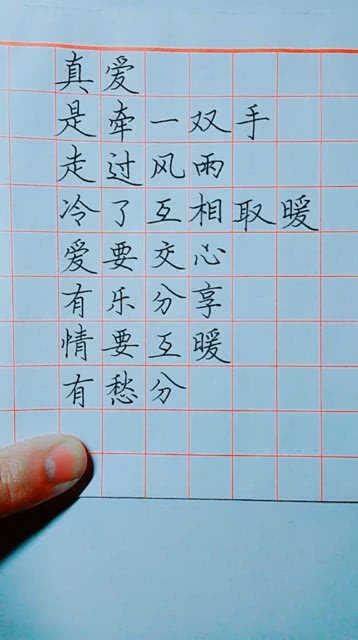 真爱
是牵一双手
走过风雨
冷了互相取暖
爱要交心
有乐分享
情要互暖
有愁分